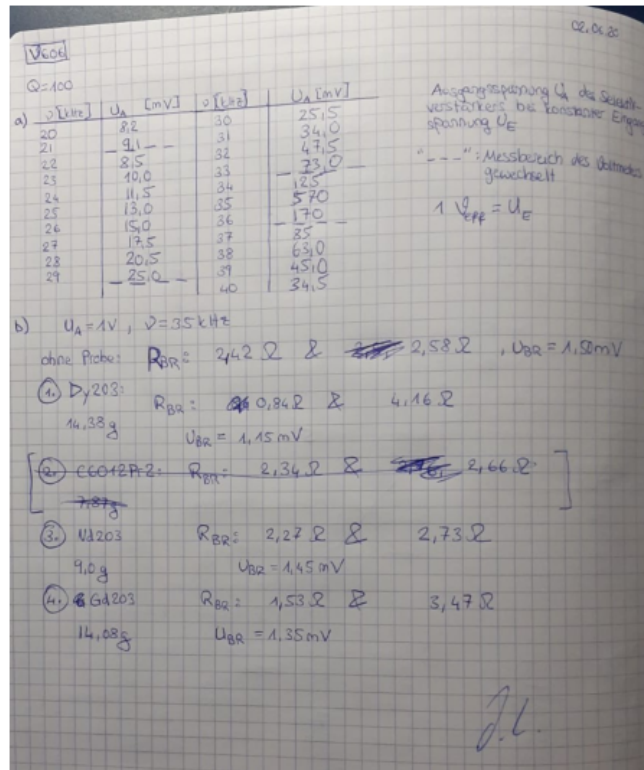 02.06.20
V606
Q=100
a) ν [kHz] U_A [mV] ν [kHz] U_A [mV]
20 8,2 30 25,5
21 9,1 31 34,0
22 8,5 32 47,5
23 10,0 33 73,0
24 11,5 34 125
25 13,0 35 570
26 15,0 36 170
27 17,5 37 85
28 20,5 38 63,0
29 25,0 39 45,0
40 34,5
Ausgangsspannung U_A des Selektiv-
verstärkers bei konstanter Eingangs
spannung U_E
"---": Messbereich des Voltmeters
gewechselt
1 V_eff = U_E
b) U_A = 1V, ν = 35 kHz
ohne Probe: R_BR: 2,42 Ω & 2,58 Ω, U_BR = 1,50mV
1. Dy2O3: R_BR: 0,84 Ω & 4,16 Ω
14,38g U_BR = 1,15 mV
2. C6O12Pr2: R_BR: 2,34 Ω & 2,66 Ω
7,87g
3. Nd2O3 R_BR: 2,27 Ω & 2,73 Ω
9,0g U_BR = 1,45 mV
4. Gd2O3 R_BR: 1,53 Ω & 3,47 Ω
14,08g U_BR = 1,35mV